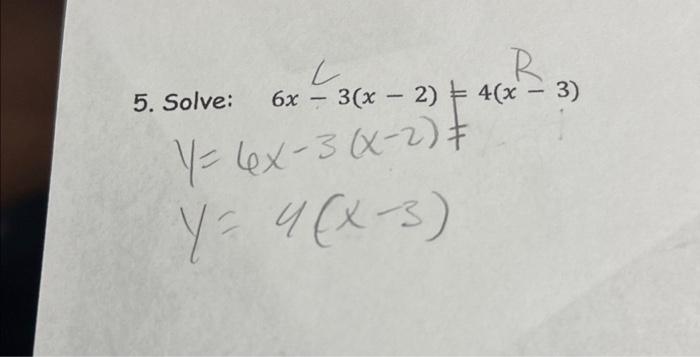 L R
5. Solve: 6x − 3(x − 2) = 4(x − 3)
y = 6x - 3(x-2) =
y = 4(x-3)